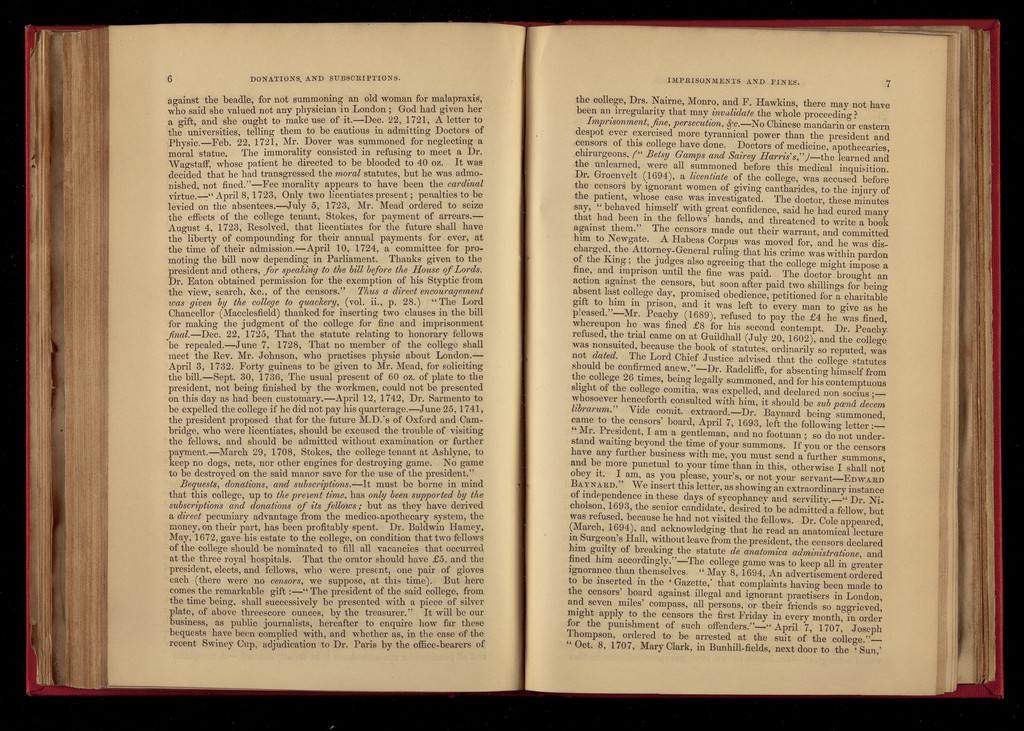 6
DONATIONS, AND SUBSCRIPTIONS.
against the beadle, for not summoning an old woman for malapraxis,
who said she valued not any physician in London; God had given her
a gift, and she ought to make use of it.—Dec. 22, 1721, A letter to
the universities, telling them to be cautious in admitting Doctors of
Physic.—Feb. 22, 1721, Mr. Dover was summoned for neglecting a
moral statue. The immorality consisted in refusing to meet a Dr.
Wagstaff, whose patient he directed to be blooded to 40 oz. It was
decided that he had transgressed the moral statutes, but he was admo-
nished, not fined."—Fee morality appears to have been the cardinal
virtue.—"April 8, 1723, Only two licentiates present; penalties to be
levied on the absentees.—July 5, 1723, Mr. Mead ordered to seize
the effects of the college tenant, Stokes, for payment of arrears.—
August 4, 1723, Resolved, that licentiates for the future shall have
the liberty of compounding for their annual payments for ever, at
the time of their admission.—April 10, 1724, a committee for pro-
moting the bill now depending in Parliament. Thanks given to the
president and others, for speaking to the bill before the House of Lords.
Dr. Eaton obtained permission for the exemption of his Styptic from
the view, search, &c., of the censors." Thus a direct encouragement
was given by the college to quackery, (vol. ii., p. 28.) "The Lord
Chancellor (Macclesfield) thanked for inserting two clauses in the bill
for making the judgment of the college for fine and imprisonment
final.—Dec. 22, 1725, That the statute relating to honorary fellows
be repealed.—June 7, 1728, That no member of the college shall
meet the Rev. Mr. Johnson, who practises physic about London.—
April 3, 1732. Forty guineas to be given to Mr. Mead, for soliciting
the bill.—Sept. 30, 1736, The usual present of 60 oz. of plate to the
president, not being finished by the workmen, could not be presented
on this day as had been customary.—April 12, 1742, Dr. Sarmento to
be expelled the college if he did not pay his quarterage.—June 25, 1741,
the president proposed that for the future M.D.'s of Oxford and Cam-
bridge, who were licentiates, should be excused the trouble of visiting
the fellows, and should be admitted without examination or further
payment.—March 29, 1708, Stokes, the college tenant at Ashlyne, to
keep no dogs, nets, nor other engines for destroying game. No game
to be destroyed on the said manor save for the use of the president."
Bequests, donations, and subscriptions.—It must be borne in mind
that this college, up to the present time, has only been supported by the
subscriptions and donations of its fellows; but as they have derived
a direct pecuniary advantage from the medico-apothecary system, the
money, on their part, has been profitably spent. Dr. Baldwin Hamey,
May, 1672, gave his estate to the college, on condition that two fellows
of the college should be nominated to fill all vacancies that occurred
at the three royal hospitals. That the orator should have £5, and the
president, elects, and fellows, who were present, one pair of gloves
each (there were no censors, we suppose, at this time). But here
comes the remarkable gift :—"The president of the said college, from
the time being, shall successively be presented with a piece of silver
plate, of above threescore ounces, by the treasurer." It will be our
business, as public journalists, hereafter to enquire how far these
bequests have been complied with, and whether as, in the case of the
recent Swiney Cup, adjudication to Dr. Paris by the office-bearers of
IMPRISONMENTS AND FINES.
7
the college, Drs. Nairne, Monro, and F. Hawkins, there may not have
been an irregularity that may invalidate the whole proceeding?
Imprisonment, fine, persecution, &c.—No Chinese mandarin or eastern
despot ever exercised more tyrannical power than the president and
censors of this college have done. Doctors of medicine, apothecaries,
chirurgeons, ("Betsy Gamps and Sairey Harris's,")—the learned and
the unlearned, were all summoned before this medical inquisition.
Dr. Groenvelt (1694), a licentiate of the college, was accused before
the censors by ignorant women of giving cantharides, to the injury of
the patient, whose case was investigated. The doctor, these minutes
say, "behaved himself with great confidence, said he had cured many
that had been in the fellows' hands, and threatened to write a book
against them." The censors made out their warrant, and committed
him to Newgate. A Habeas Corpus was moved for, and he was dis-
charged, the Attorney-General ruling that his crime was within pardon
of the King; the judges also agreeing that the college might impose a
fine, and imprison until the fine was paid. The doctor brought an
action against the censors, but soon after paid two shillings for being
absent last college day, promised obedience, petitioned for a charitable
gift to him in prison, and it was left to every man to give as he
pleased."—Mr. Peachy (1689), refused to pay the £4 he was fined,
whereupon he was fined £8 for his second contempt. Dr. Peachy
refused, the trial came on at Guildhall (July 20, 1602), and the college
was nonsuited, because the book of statutes, ordinarily so reputed, was
not dated. The Lord Chief Justice advised that the college statutes
should be confirmed anew."—Dr. Radcliffe, for absenting himself from
the college 26 times, being legally summoned, and for his contemptuous
slight of the college comitia, was expelled, and declared non socius;—
whosoever henceforth consulted with him, it should be sub pœnâ decem
librarum." Vide comit. extraord.—Dr. Baynard being summoned,
came to the censors' board, April 7, 1693, left the following letter:—
"Mr. President, I am a gentleman, and no footman; so do not under-
stand waiting beyond the time of your summons. If you or the censors
have any further business with me, you must send a further summons,
and be more punctual to your time than in this, otherwise I shall not
obey it. I am, as you please, your's, or not your servant—EDWARD
BAYNARD." We insert this letter, as showing an extraordinary instance
of independence in these days of sycophancy and servility.—"Dr. Ni-
cholson, 1693, the senior candidate, desired to be admitted a fellow, but
was refused, because he had not visited the fellows. Dr. Cole appeared,
(March, 1694), and acknowledging that he read an anatomical lecture
in Surgeon's Hall, without leave from the president, the censors declared
him guilty of breaking the statute de anatomica administratione, and
fined him accordingly."—The college game was to keep all in greater
ignorance than themselves. "May 8, 1694, An advertisement ordered
to be inserted in the 'Gazette,' that complaints having been made to
the censors' board against illegal and ignorant practisers in London,
and seven miles' compass, all persons, or their friends so aggrieved,
might apply to the censors the first Friday in every month, in order
for the punishment of such offenders."—"April 7, 1707, Joseph
Thompson, ordered to be arrested at the suit of the college."—
"Oct. 8, 1707, Mary Clark, in Bunhill-fields, next door to the 'Sun,'